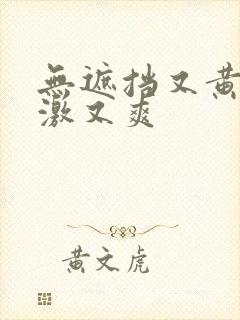 無遮挡又黄
激又爽
黄文虎